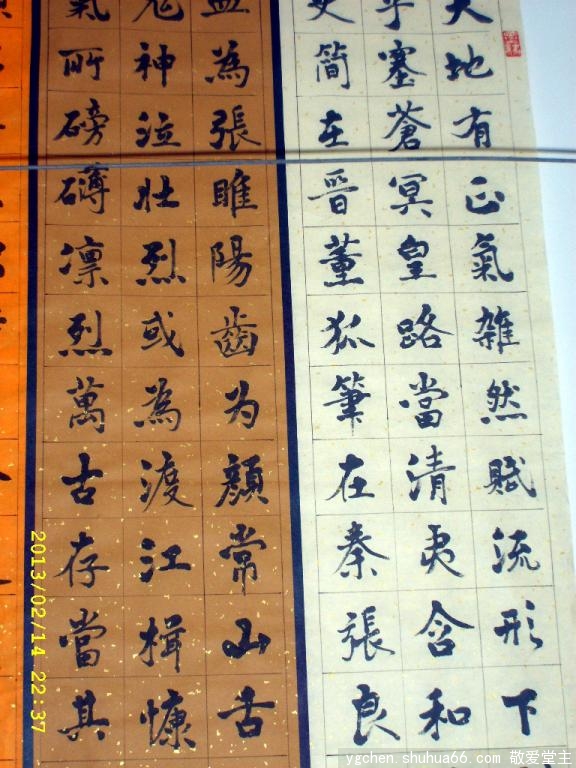 天地有正氣雜然賦流形下
乎塞蒼冥皇路當清夷含和
史簡在晉董狐筆在秦張良
血為張睢陽齒为顏常山舌
鬼神泣壯烈或為渡江楫慷
氣所磅礴凛烈萬古存當其
2013/02/14 22:37
ygchen.shuhua66.com 敬爱堂主